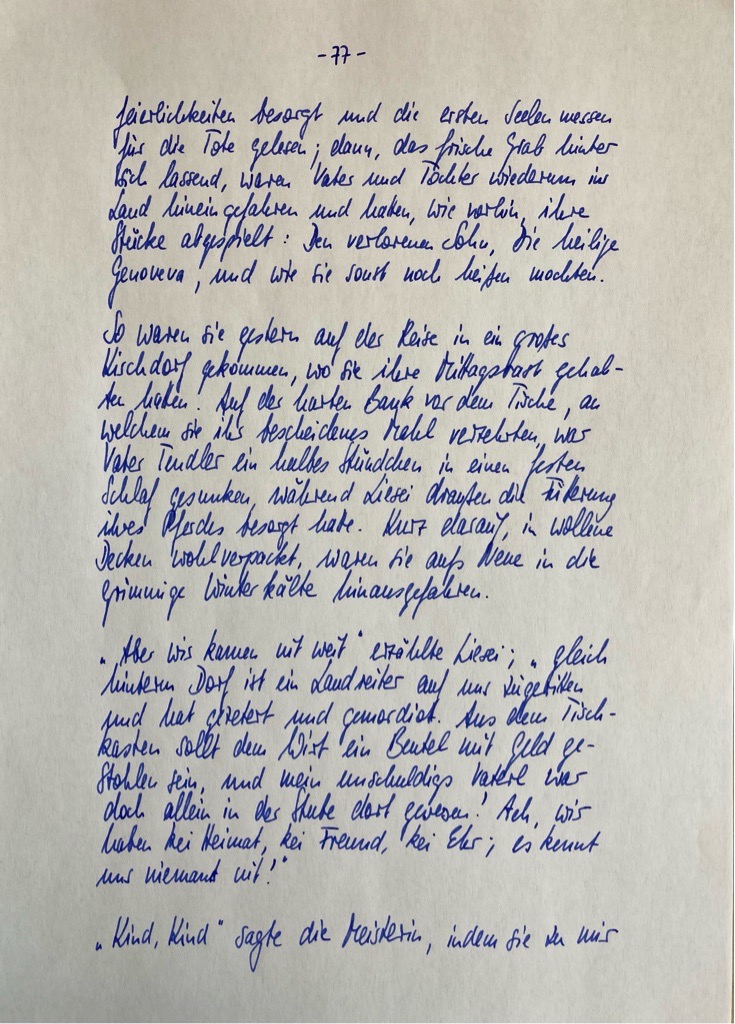 - 77 -
feierlichkeiten besorgt und die ersten Seelenmessen
für die Tote gelesen; dann, das frische Grab hinter
sich lassend, waren Vater und Tochter wiederum ins
Land hineingefahren und haben, wie vorhin, ihre
Stücke abgespielt: Den verlorenen Sohn, Die heilige
Genoveva, und wie sie sonst noch heißen mochten.
So waren sie gestern auf der Reise in ein großes
Kirchdorf gekommen, wo sie ihre Mittagsrast gehal-
ten haben. Auf der harten Bank vor dem Tische, an
welchem sie ihr bescheidenes Mahl verzehrten, war
Vater Tendler ein halbes Stündchen in einen festen
Schlaf gesunken, während Liesei draußen die Fütterung
ihres Pferdes besorgt hatte. Kurz darauf, in wollene
Decken wohlverpackt, waren sie aufs Neue in die
grimmige Winterkälte hinausgefahren.
„Aber wir kamen nit weit" erzählte Liesei; „gleich
hinterm Dorf ist ein Landreiter auf uns zugeritten
und hat gezetert und gemordiot. Aus dem Tisch-
kasten sollt dem Wirt ein Beutel mit Geld ge-
stohlen sein, und mein unschuldigs Vaterl war
doch allein in der Stube dort gewesen! Ach, wir
haben kei Heimat, kei Freund, kei Ehr; es kennt
uns niemant nit!"
„Kind, Kind" sagte die Meisterin, indem sie zu mir